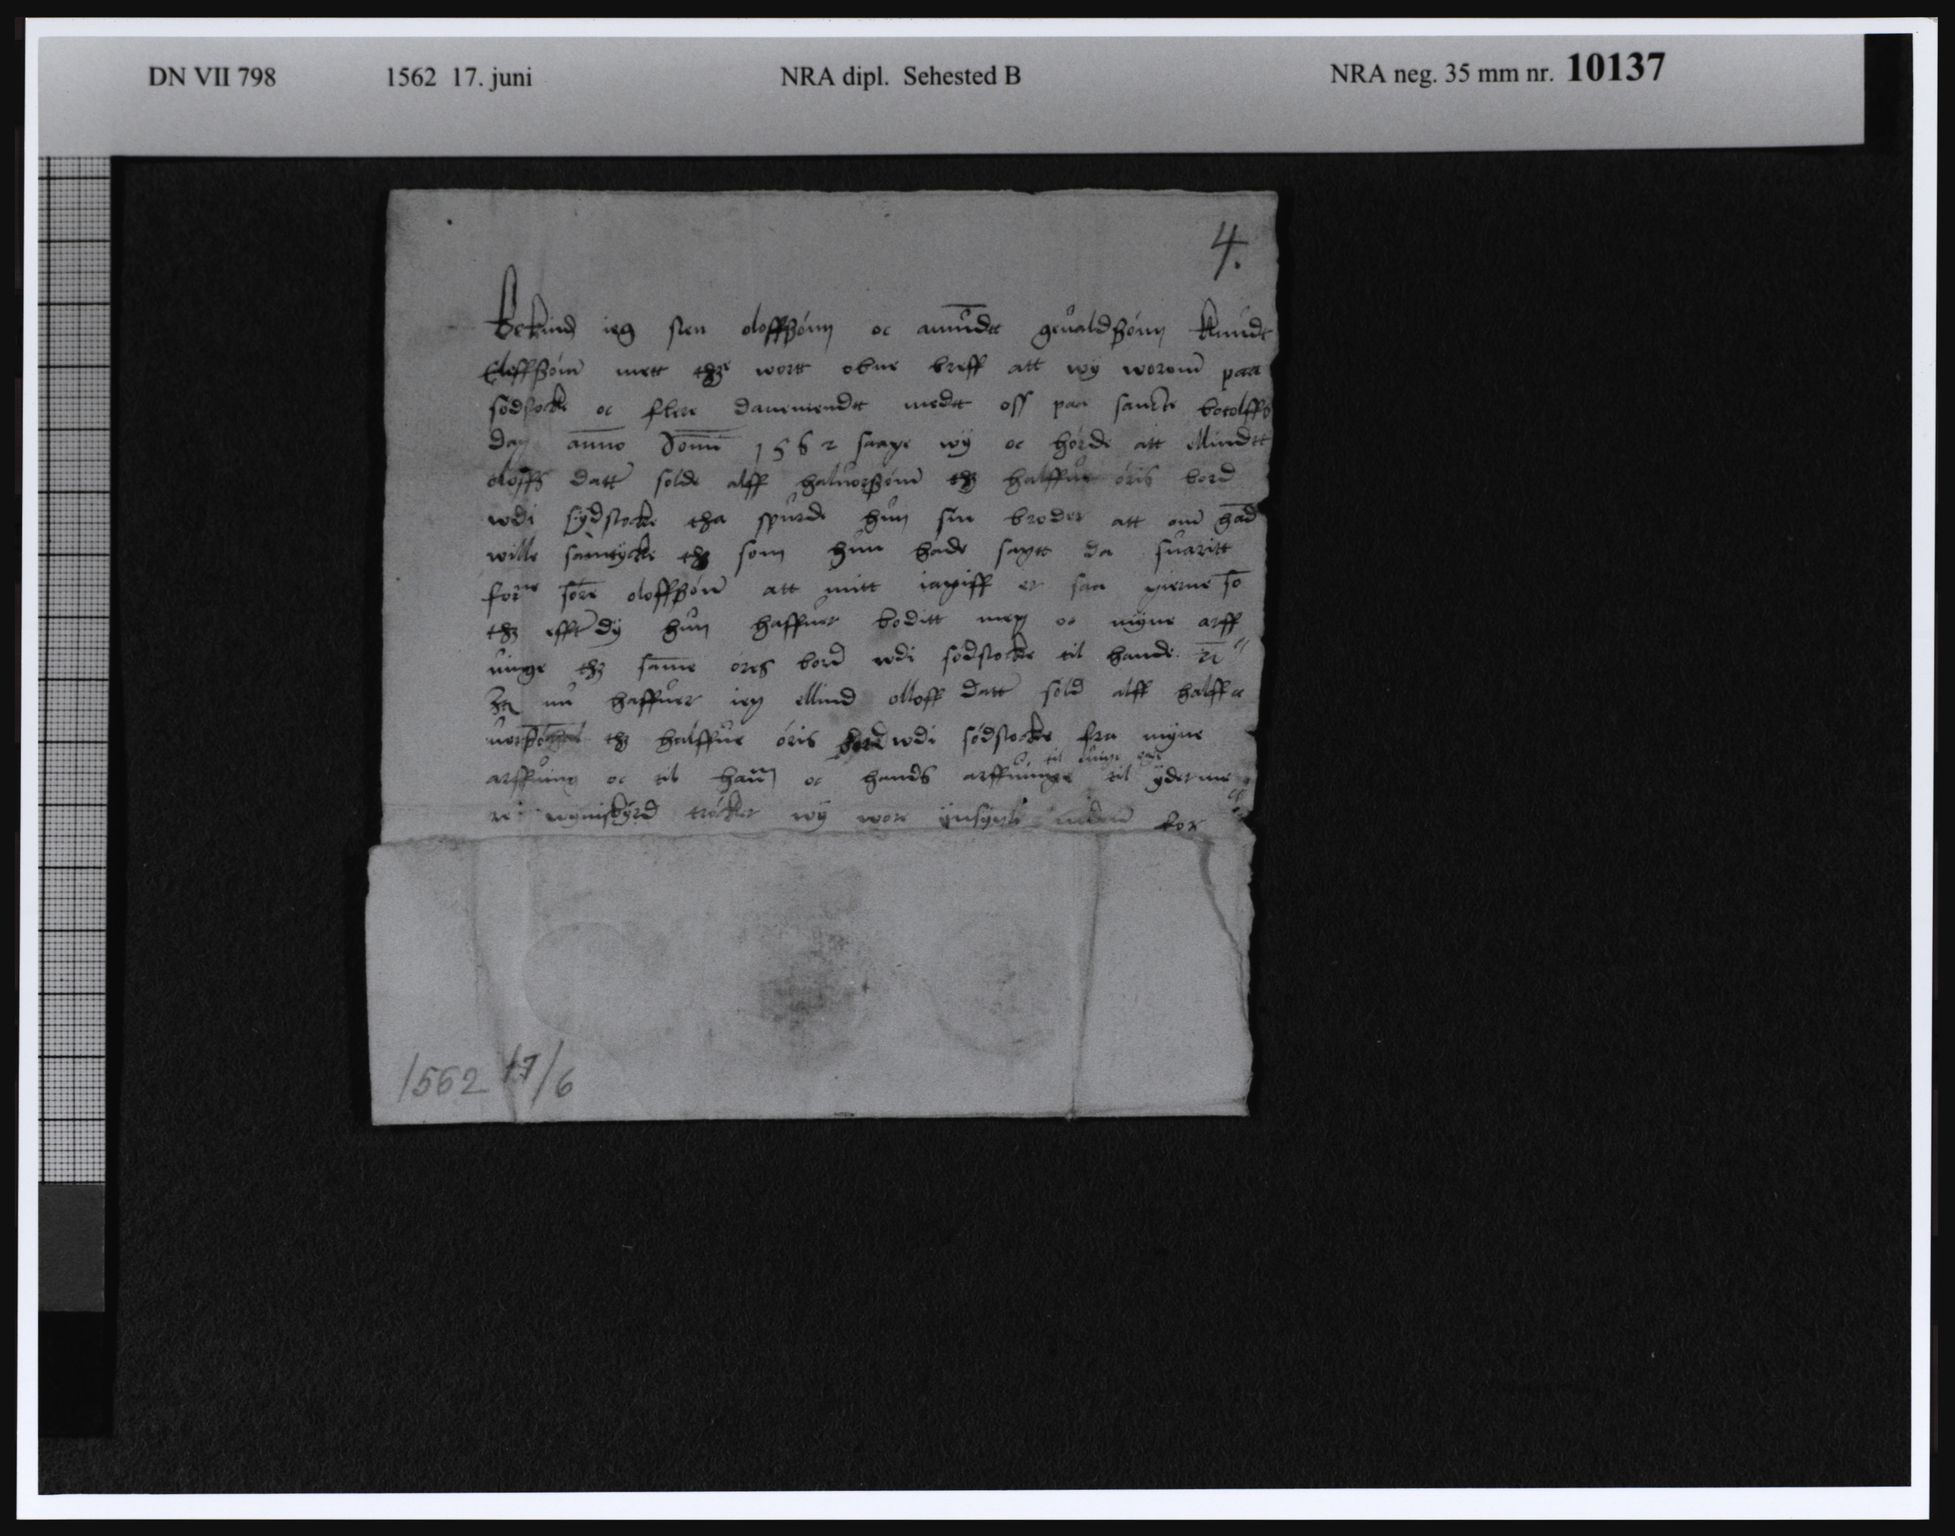 DN VII 798 1562 17. juni NRA dipl. Sehested B NRA neg. 35 mm nr. 10137
4.
Bekind ieg sten oloffßønn oc amundtt geualdßønn knudt
Eloffßønn mett thze wortt obne breff att wy worom paa
sødstocke oc flere danemendtt medtt oss paa sancte botolffs
dag anno domni 1562 saage wy oc hørde att ellindtt
oloffs datter solde alff haluorßønn thz halffue øris bord
wdi sydstocke tha spurde hun sin broder att om had
wille samtycke thz som hun hade sagtt da suaritt
forne oloffßønn att mitt iagiff er saa gierne so
thz effter dy hun haffuer boditt meg oc myne arff
uinge thz same øres bord wdi sødstocke til hande
nu haffuer ieg ellind olloff datter sold alff
thz halffue øris bord wdi sødstocke fra myne
til euige eige
arffuing oc til hann oc hands arffuinge til yderme
re wyniskyrd trøcker wy wore ynsygle for
1562 17/6